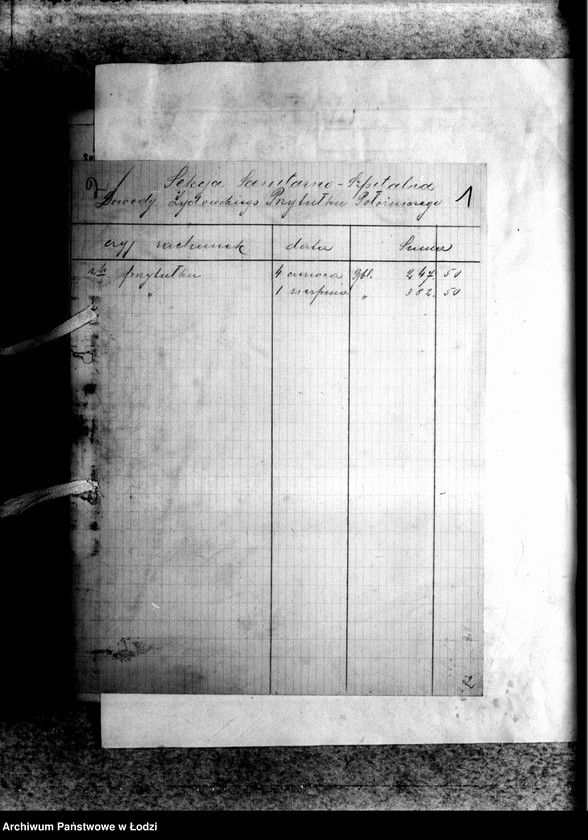 2/ Sekcja Sanitarno-Szpitalna 1
Dowody Żydowskiego Przytułku Położniczego
czyj rachunek data Suma
przytułku 4 czerwca Rbl. 247. 50
" 1 sierpnia " 382. 50
2
Archiwum Państwowe w Łodzi